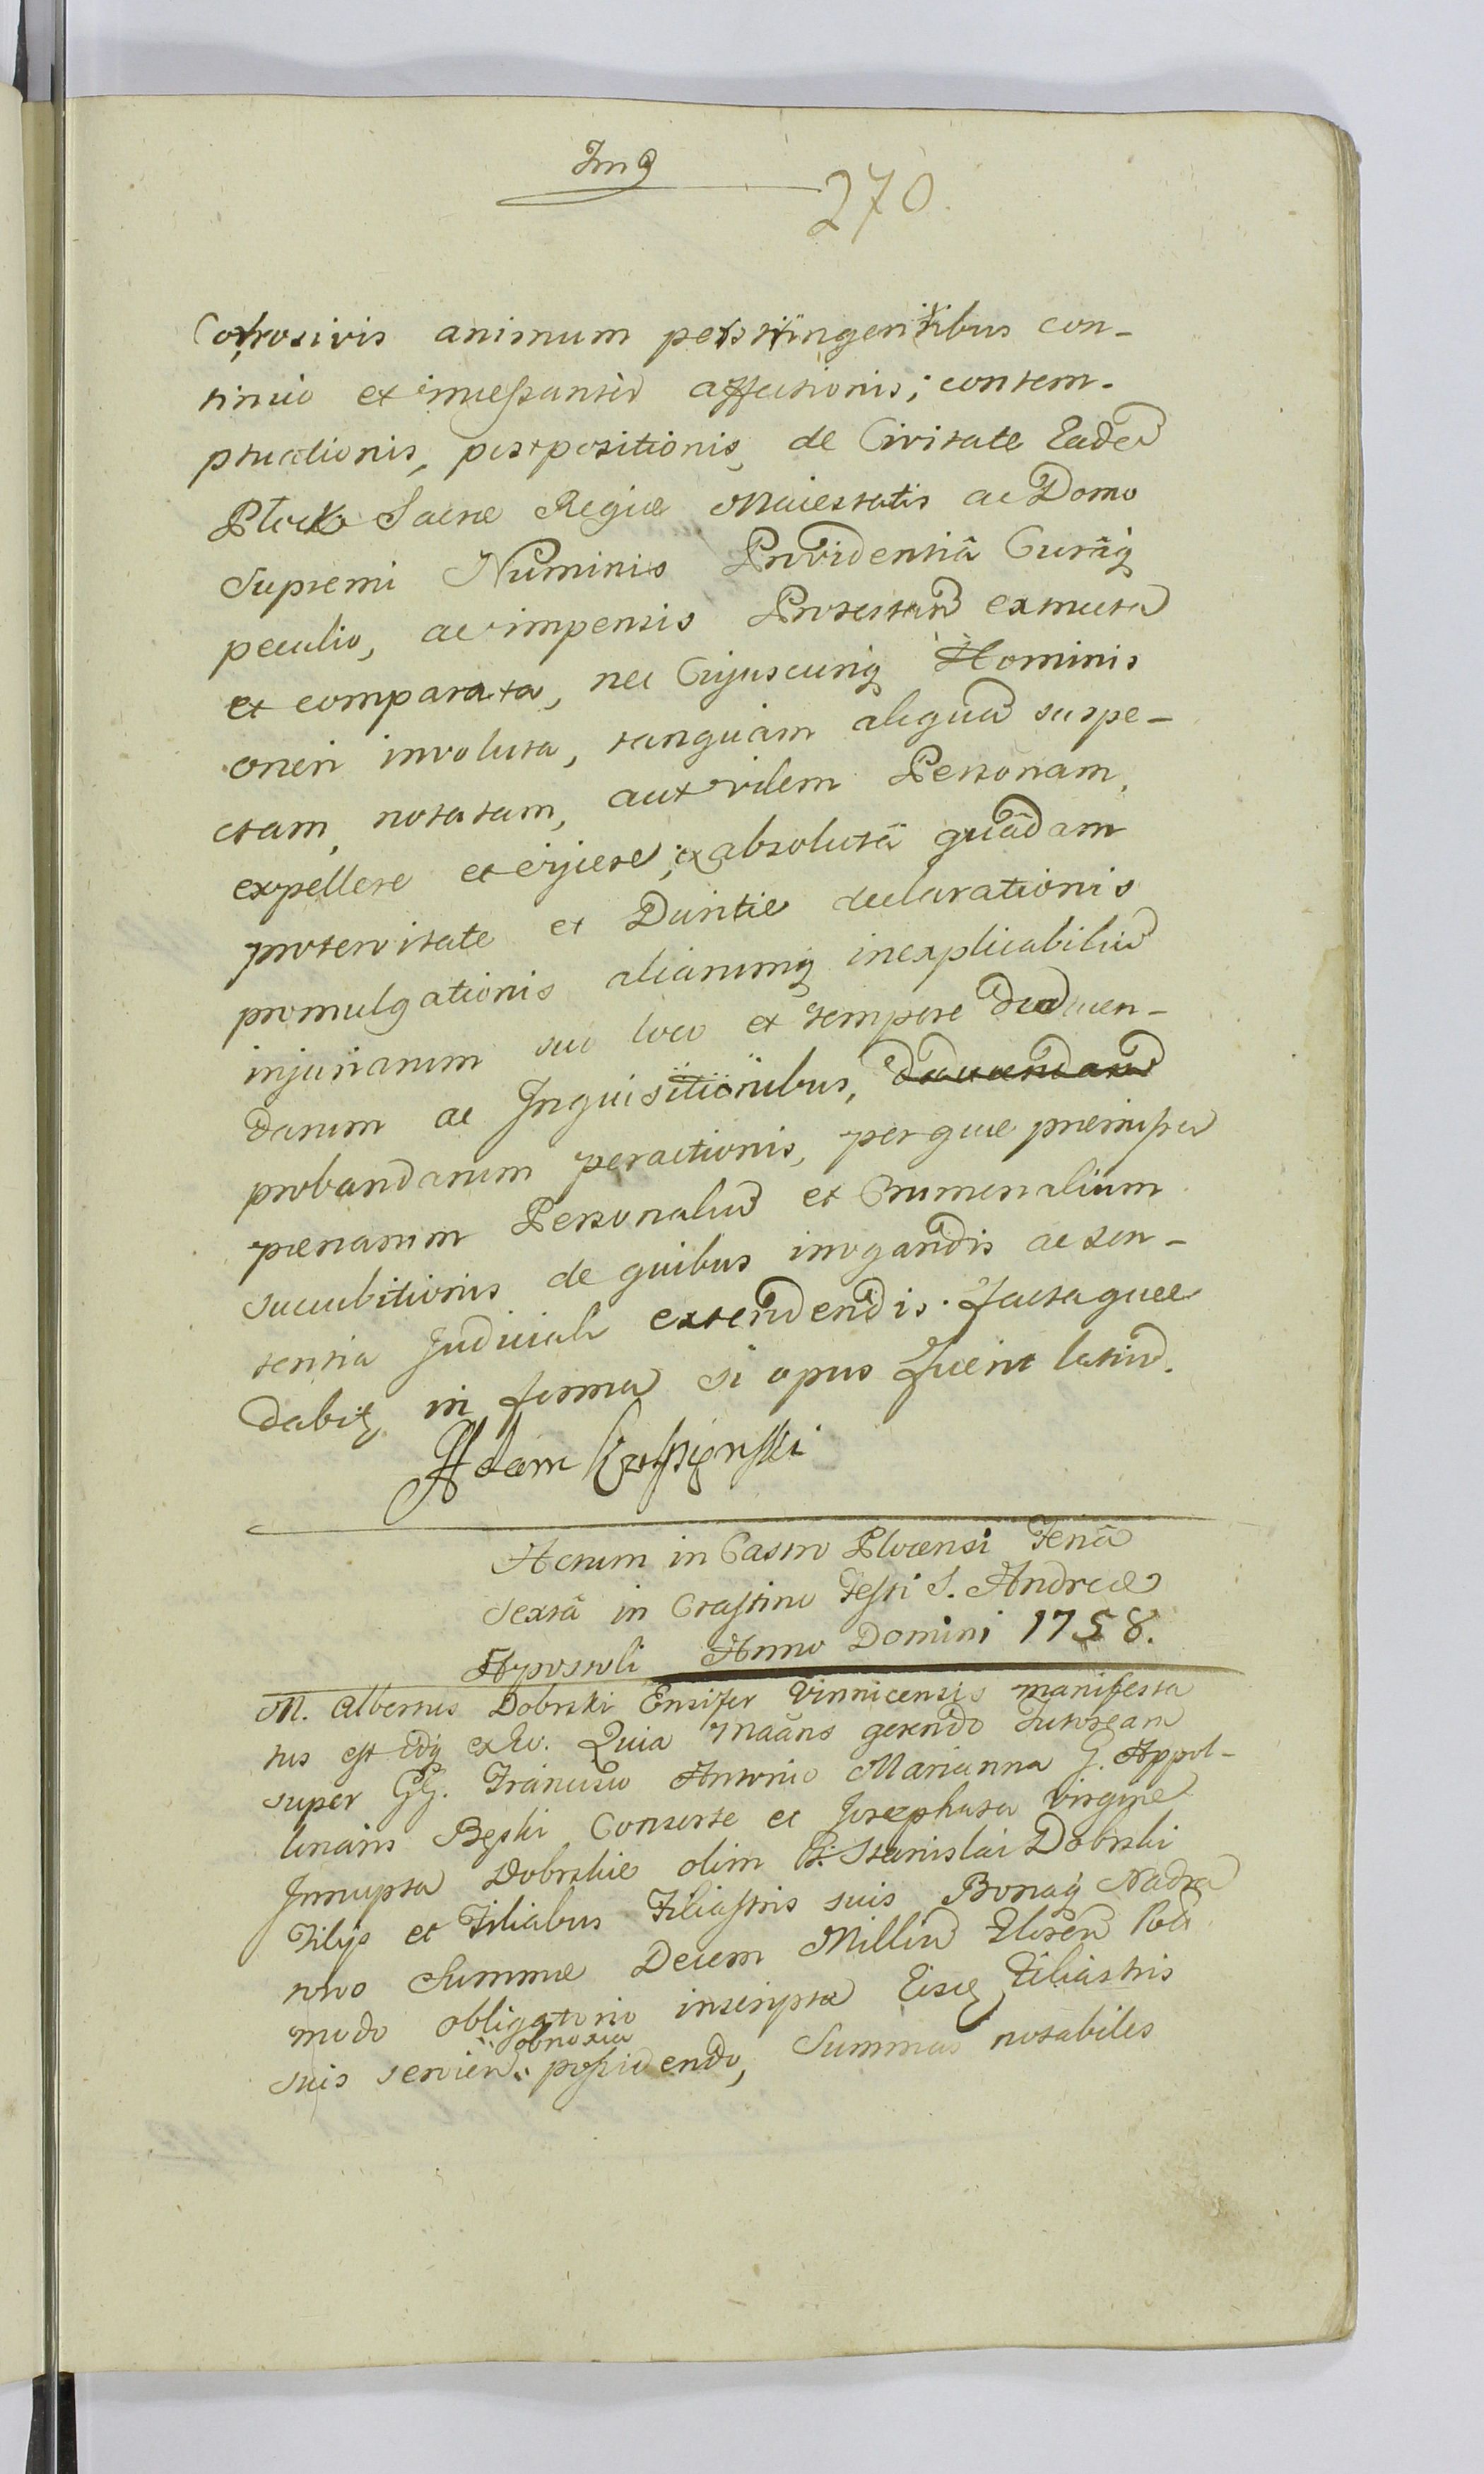 270.
Corrosivis animum perstringentibus con-
tinuo et incessanter affectionis, contem-
ptuationis, postpositionis, de Civitate Eadem
Plocko Sacrae Regiae Maiestatis ac Domo
Supremi Numinis Providentiâ Curâq
peculio, ac impensis Protestan exstructa
et comparata, nec Cujuscunq Hominis
oneri involuta, tanquam aliquam suspe-
ctam, notatam, aut vilem Personam,
expellere et ejicere, ex absolutâ quâdam
protervitate et Duritie declarationis
promulgationis aliarumq inexplicabilium
injuriarum suo loco et tempore deducen-
darum ac Inquisitionibus,
probandarum peractionis, per quae praemissa
paenarum Personalium et Criminalium
succubitionis de quibus irrogandis ac sen-
tentia Judiciali extendendis. Factaque
dabit, in forma si opus fuerit latiori.
Adam
Actum in Castro Plocensi Feriâ
Sextâ in Crastino Festi S. Andreae
Apostoli Anno Domini 1758.
M. Albertus Dobrski Ensifer Vinnicensis manifesta
tus est idq ex eo. Quia Maāns gerendo Tutoream
super GG. Francisco Antonio Marianna G. Appol-
linaris Bęski Consorte et Josephata Virgine
Innupta Dobrskie olim G. Stanislai Dobrski
Filijs et Filiabus Filiastris suis Bonaq Nadra
Summae Decem Millium Floren Pol
modo obligatorio inscripta Eisq Filiastris
suis servien obnoxia possidendo, Summas notabiles